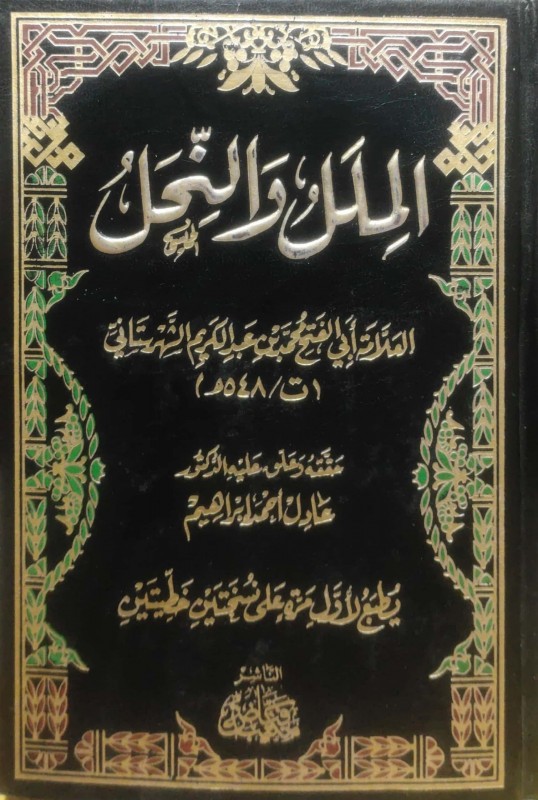 المِلَلُ وَالنِّحَلُ
العلامة أبي الفتح محمد بن عبد الكريم الشهرستاني
(ت/٥٤٨هـ)
حققه وعلق عليه الدكتور
عادل أحمد إبراهيم
يطبع لأول مرة على نسختين خطيتين
الناشر